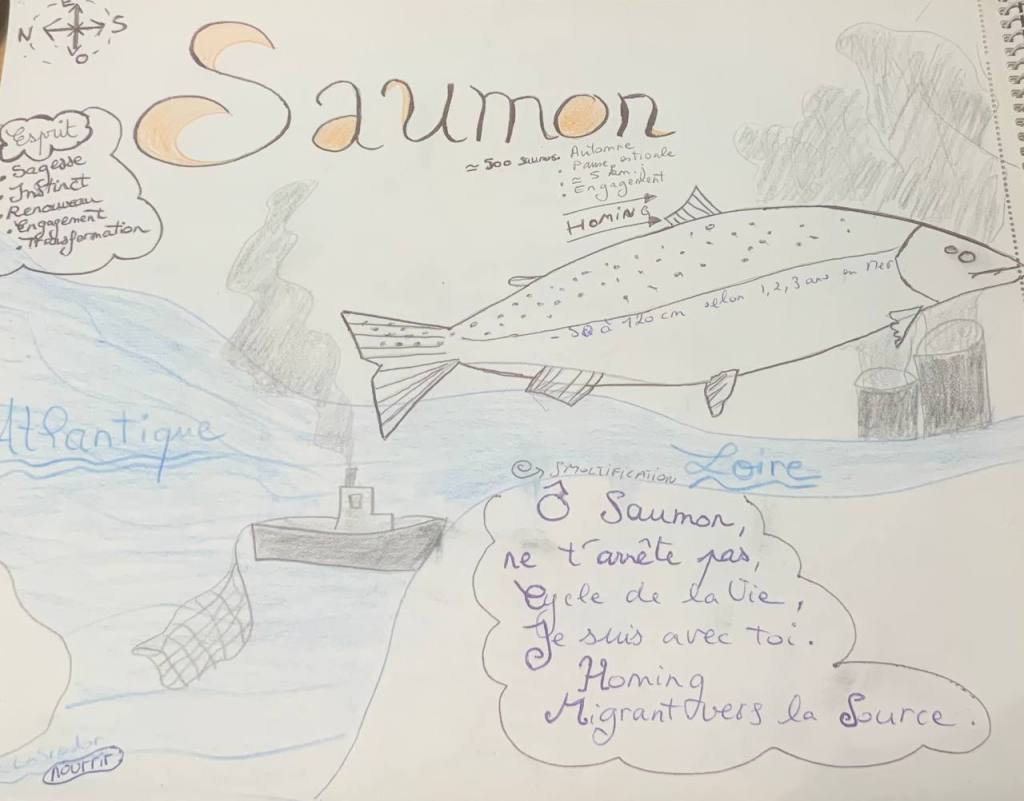 E
N S
O
Saumon
Esprit
• Sagesse
• Instinct
• Renouveau
• Engagement
• Transformation
≃ 500 saumons
• Automne
• Pause estivale
• ≃ 5 km.j
• Engagement
HOMING
- 50 à 120 cm selon 1, 2, 3 ans en Mer
Atlantique
Loire
SMOLTIFICATION
Ô Saumon,
ne t'arrête pas,
Cycle de la Vie,
Je suis avec toi.
Homing
Migrant vers la Source.
Labrador
nourrir